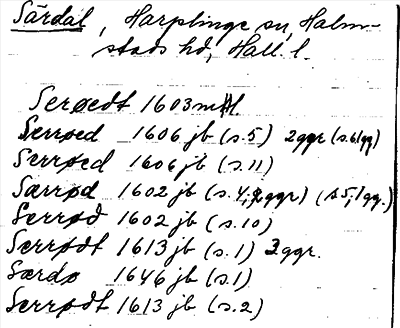 Särdal, Harplinge sn, Halm-
stads hd, Hall. l.
Serøedt 1603 mtl.
Serrøed 1606 jb (s.5) 2ggr (s.6 1gg)
Serrøed 1606 jb (s.11)
Særrød 1602 jb (s.4, 2ggr) (s.5, 1gg.)
Serrød 1602 jb (s.10)
Serrødt 1613 jb (s.1) 3ggr.
Særdø 1646 jb (s.1)
Serrødt 1613 jb (s.2)